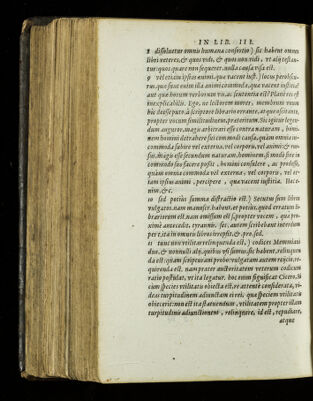 IN LIB. III.
8 dissoluatur omnis humana consortio) sic habent omnes
libri veteres, & quos vidi, & quos non vidi, vt alij testan-
tur: quos quare non sequerer, nulla causa visa est.
9 vel etiam ipsius animi, quæ vacent iust.) locus perobscu-
rus, quæ sunt enim illa animi commoda, quæ vacent iustitia?
aut quæ horum verborum vis, ac sententia est? Planè res est
inexplicabilis. Ego, ne lectorem morer, membrum vnum
hic deesse puto, à scriptore librario errante, atque oscitante,
propter vocum similitudinem, prætermissum. Sic igitur legen-
dum auguror, magis arbitrari esse contra naturam, homi-
nem homini detrahere sui commodi causa, quàm omnia in-
commoda subire vel externa, vel corporis, vel animi: & rur-
sus, magis esse secundum naturam, hominem, si modo sine in-
commodo suo facere possit, homini consulere, ac prodesse,
quàm omnia commoda vel externa, vel corporis, vel et-
iam ipsius animi, percipere, quæ vacent iustitia. Hacte-
nus, &c.
10 sed potius summa distractio est.) Secutus sum libros
vulgatos. nam manuscr. habent, at potius, quod erratum li-
brariorum est. nam omissum est s, propter vocem, quæ pro-
ximè antecedit, tyrannis. sic. autem scribebant interdum
pro sed. ita in omnes libros irrepsit, at, pro, sed.
11 tunc non vtilitas relinquenda est,) codices Memmiani
duo, & nonnulli alij, quibus vsi sumus, sic habent. relinquen-
da est: quam scripturam probo: vulgatam autem reiicio, re-
quirenda est. nam præter auctoritatem veterum codicum
ratio postulat, vt ita legatur. hoc enim significat Cicero, Si
cum species vtilitatis obiecta est, re attentè considerata, vi-
deas turpitudinem adiunctam ei rei, quæ speciem vtilitatis
obiecerit: non est ita statuendum, vtilitatem propter illam
turpitudinis adiunctionem, relinquere, id est, repudiare,
atque